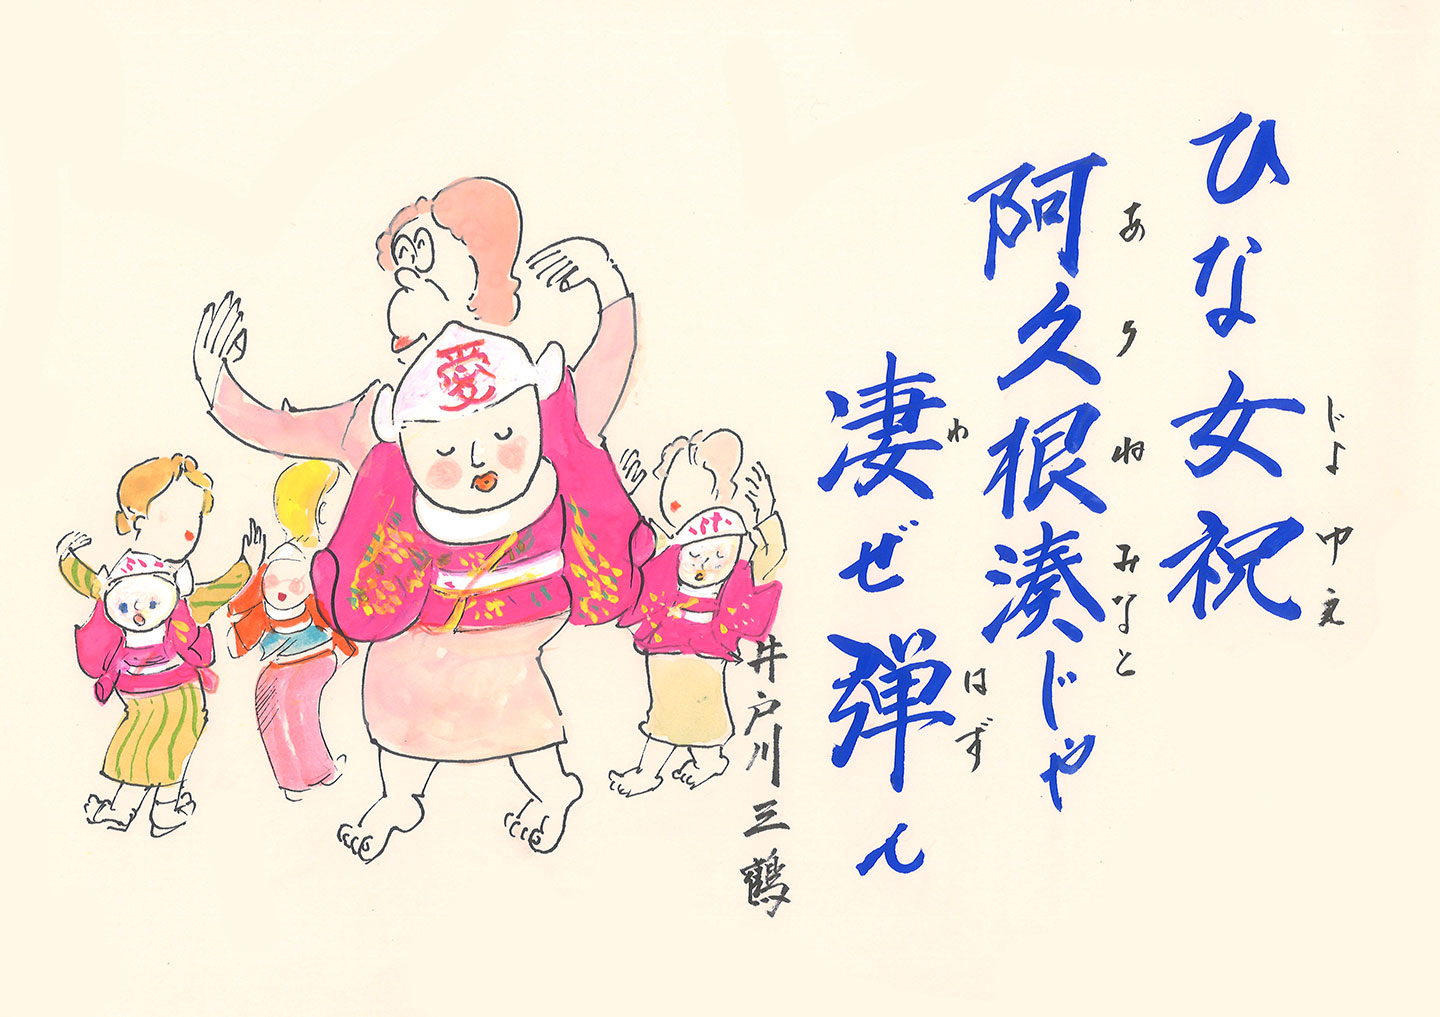 ひな女祝
じよゆえ
阿久根湊じゃ
あくねみなと
凄ぜ弾ん
わはず
井戸川三鶴
愛